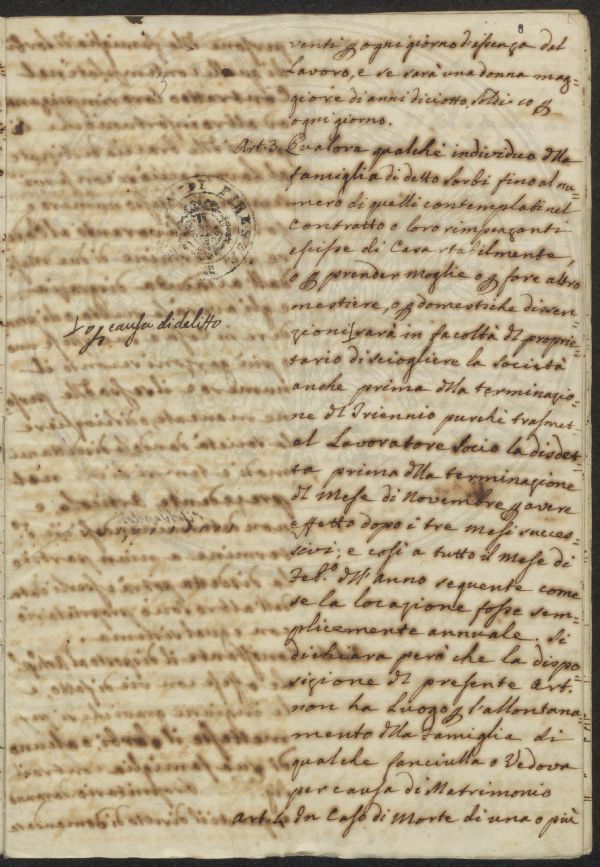 8
venti ꝑ ogni giorno d'assenza dal
Lavoro, e se sarà una donna mag=
giore di anni diciotto, soldi 10 ꝑ
ogni giorno.
Art. 3. Qualora qualche individuo dlla
famiglia di detto Sorbi fino al nu=
mero di quelli contemplati nel
Contratto o loro rimpiazzanti
escisse di Casa stabilmente,
o ꝑ prender Moglie o ꝑ fare altro
mestiere, o ꝑ domestiche dissen=
zioni sarà in facoltà dl proprie=
tario di sciogliere la società
anche prima dlla terminazio=
ne dl Triennio purchè trasmet.
al Lavoratore Socio la disdet=
ta prima dlla terminazione
dl Mese di Novembre ꝑ avere
effetto dopo i tre mesi succes=
sivi, e così a tutto il Mese di
Feb.º dll'anno seguente come
se la locazione fosse sem=
plicemente annuale. Si
dichiara però che la dispo=
sizione dl presente Art.
non ha Luogo ꝑ l'allontana=
mento dlla Famiglia di
qualche fanciulla o Vedova
per causa di Matrimonio
Art. 4. In Caso di Morte di una o più
o ꝑ causa di delitto.
DI FIRENZE